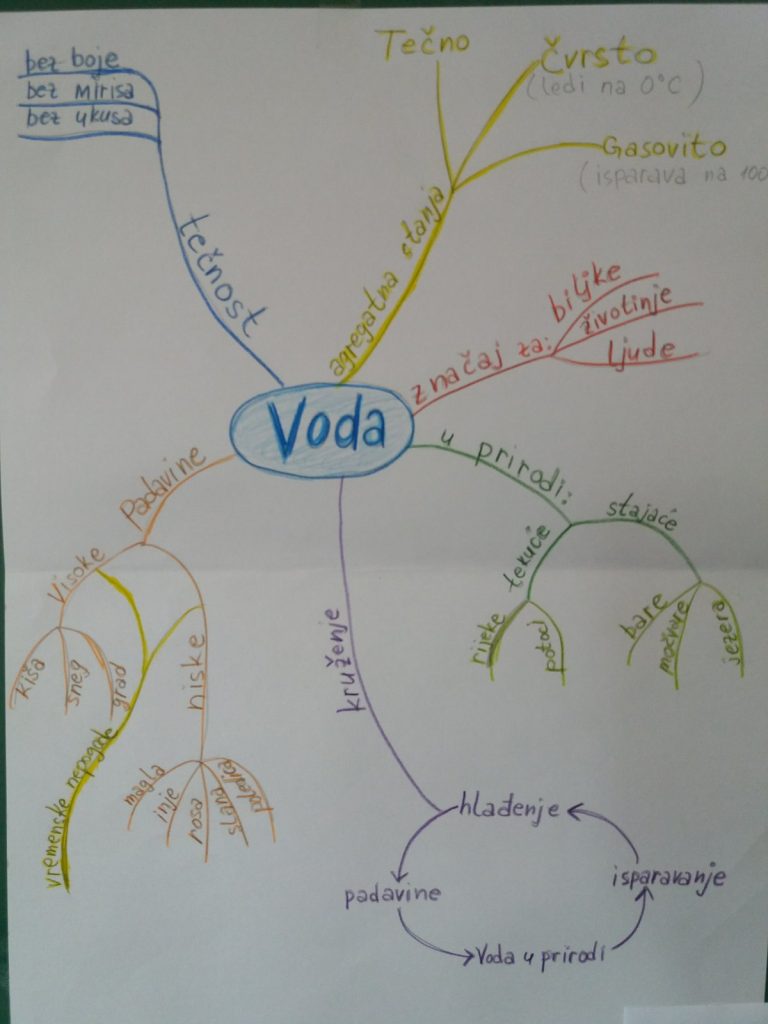 bez boje
bez mirisa
bez ukusa
tečnost
Tečno
Čvrsto
(ledi na 0°C)
Gasovito
(isparava na 100
agregatna stanja
značaj za:
biljke
životinje
ljude
Voda
u prirodi:
tekuće
rijeke
potoci
stajaće
bare
močvare
jezera
Padavine
Visoke
kiša
sneg
grad
niske
magla
inje
rosa
slana
poledica
vremenske nepogode
kruženje
hlađenje
padavine
Voda u prirodi
isparavanje